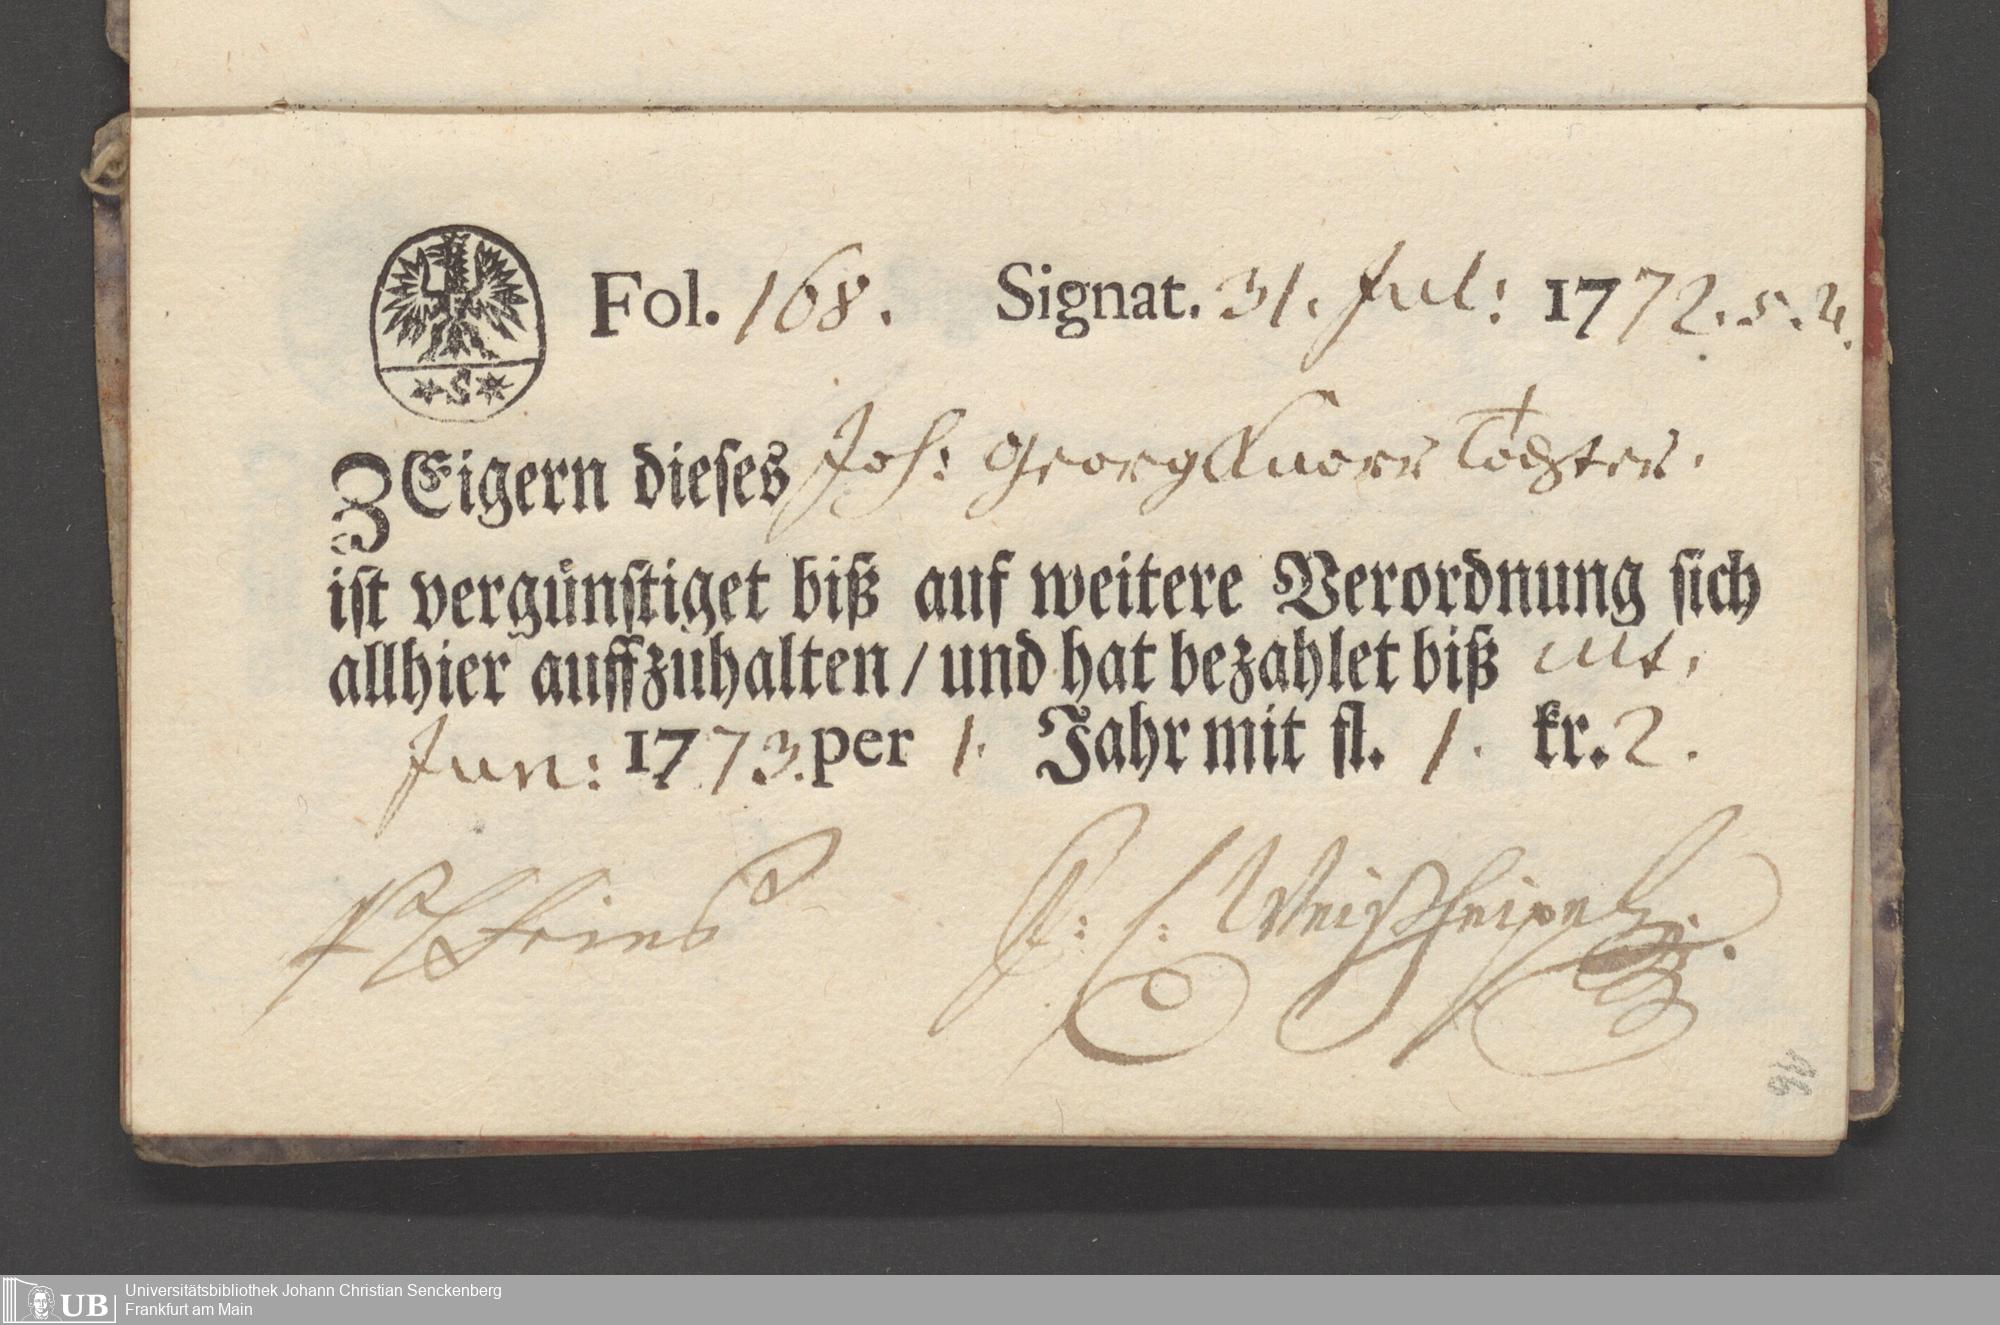 Fol. 168. Signat. 31. Jul: 1772. S. 2.
S
ZEigern dieses Joh: Georg Knorr Tochter.
ist vergünstiget biß auf weitere Verordnung sich
allhier auffzuhalten / und hat bezahlet biß ult.
Jun: 1773. per 1. Jahr mit fl. 1. kr. 2.
Fries
Weißheipel
UB
Universitätsbibliothek Johann Christian Senckenberg
Frankfurt am Main